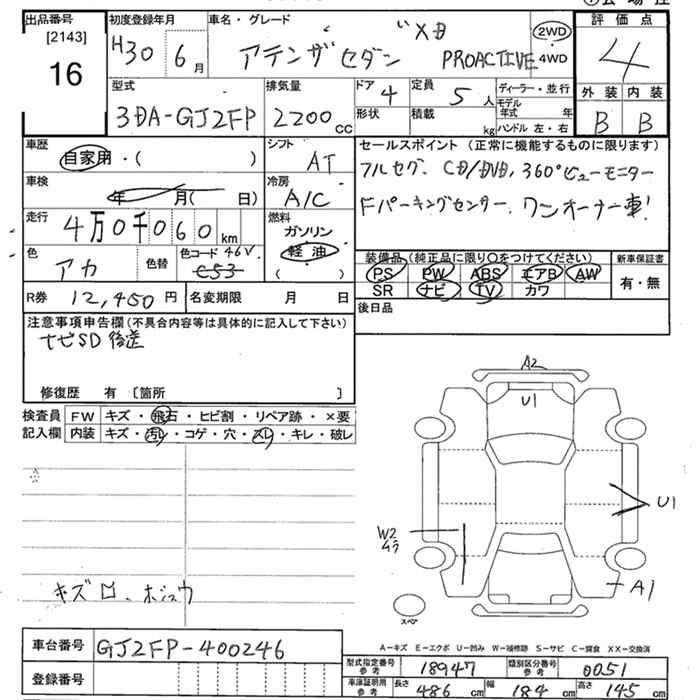 出品番号 初度登録年月 車名・グレード 評価点
[2143] H30 6月 アテンザセダン XD PROACTIVE 2WD 4WD 4
16
型式 排気量 ドア 4 定員 5 人 ディーラー・並行 外装 内装
3DA-GJ2FP 2200 cc 形状 積載 kg モデル年式 年 B B
ハンドル 左・右
車歴 シフト セールスポイント (正常に機能するものに限ります)
自家用・( ) AT フルセグ、CD/DVD、360°ビューモニター
車検 年 月( 日) 冷房 A/C Fパーキングセンサー、ワンオーナー車!
走行 4万0千060 km 燃料 ガソリン
軽油
( )
色 アカ 色替 色コード 46V
C53
装備品 (純正品に限り○をつけてください) 新車保証書
PS PW ABS エアB AW 有・無
SR ナビ TV カワ
R券 12,450円 名変期限 月 日 後日品
注意事項申告欄 (不具合内容等は具体的に記入して下さい)
ナビSD後送
修復歴 有 〔箇所 〕
検査員 FW キズ・飛石・ヒビ割・リペア跡・×要
記入欄 内装 キズ・汚レ・コゲ・穴・スレ・キレ・破レ
A2
U1
U1
W2
A1
スペア
キズ
A−キズ E−エクボ U−凹み W−補修跡 S−サビ C−腐食 XX−交換済
車台番号 GJ2FP-400246
型式指定番号 参考 18947 類別区分番号 参考 0051
登録番号 車庫証明用 参考 長さ 486 cm 幅 184 cm 高さ 145 cm